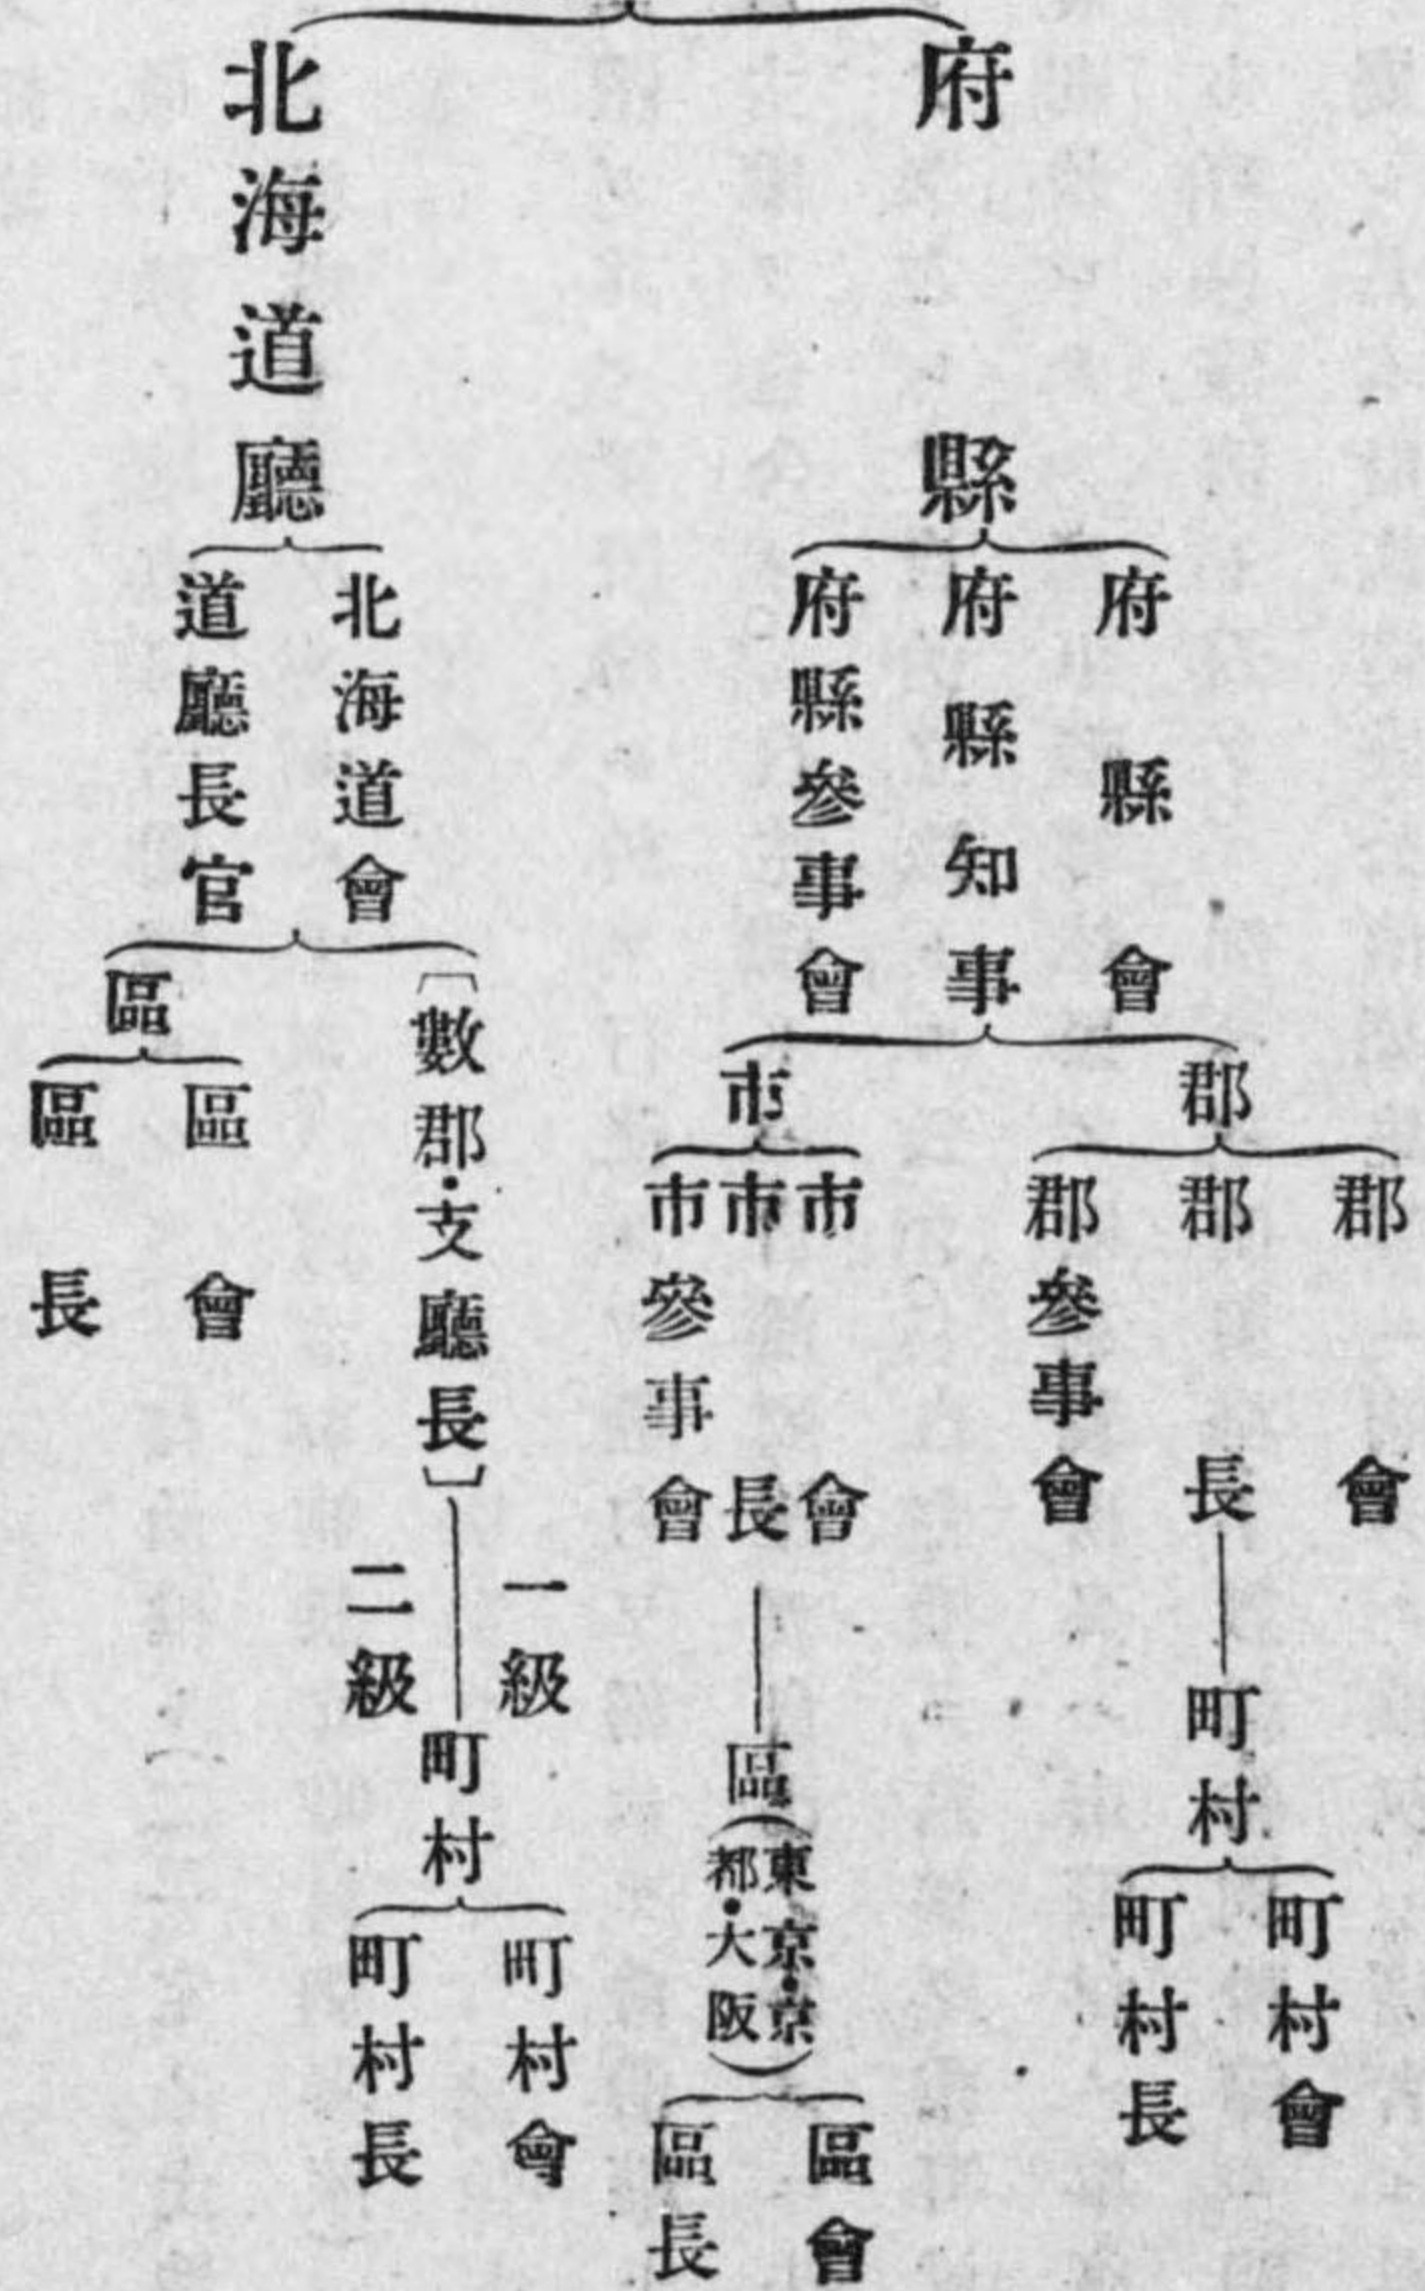 府縣
府縣會
府縣知事
府縣參事會
郡
郡會
郡長
郡參事會
町村
町村會
町村長
市
市會
市長
市參事會
區(東京・京都・大阪)
區會
區長
北海道廳
北海道會
道廳長官
〔數郡・支廳長〕
一級
二級
町村
町村會
町村長
區
區會
區長